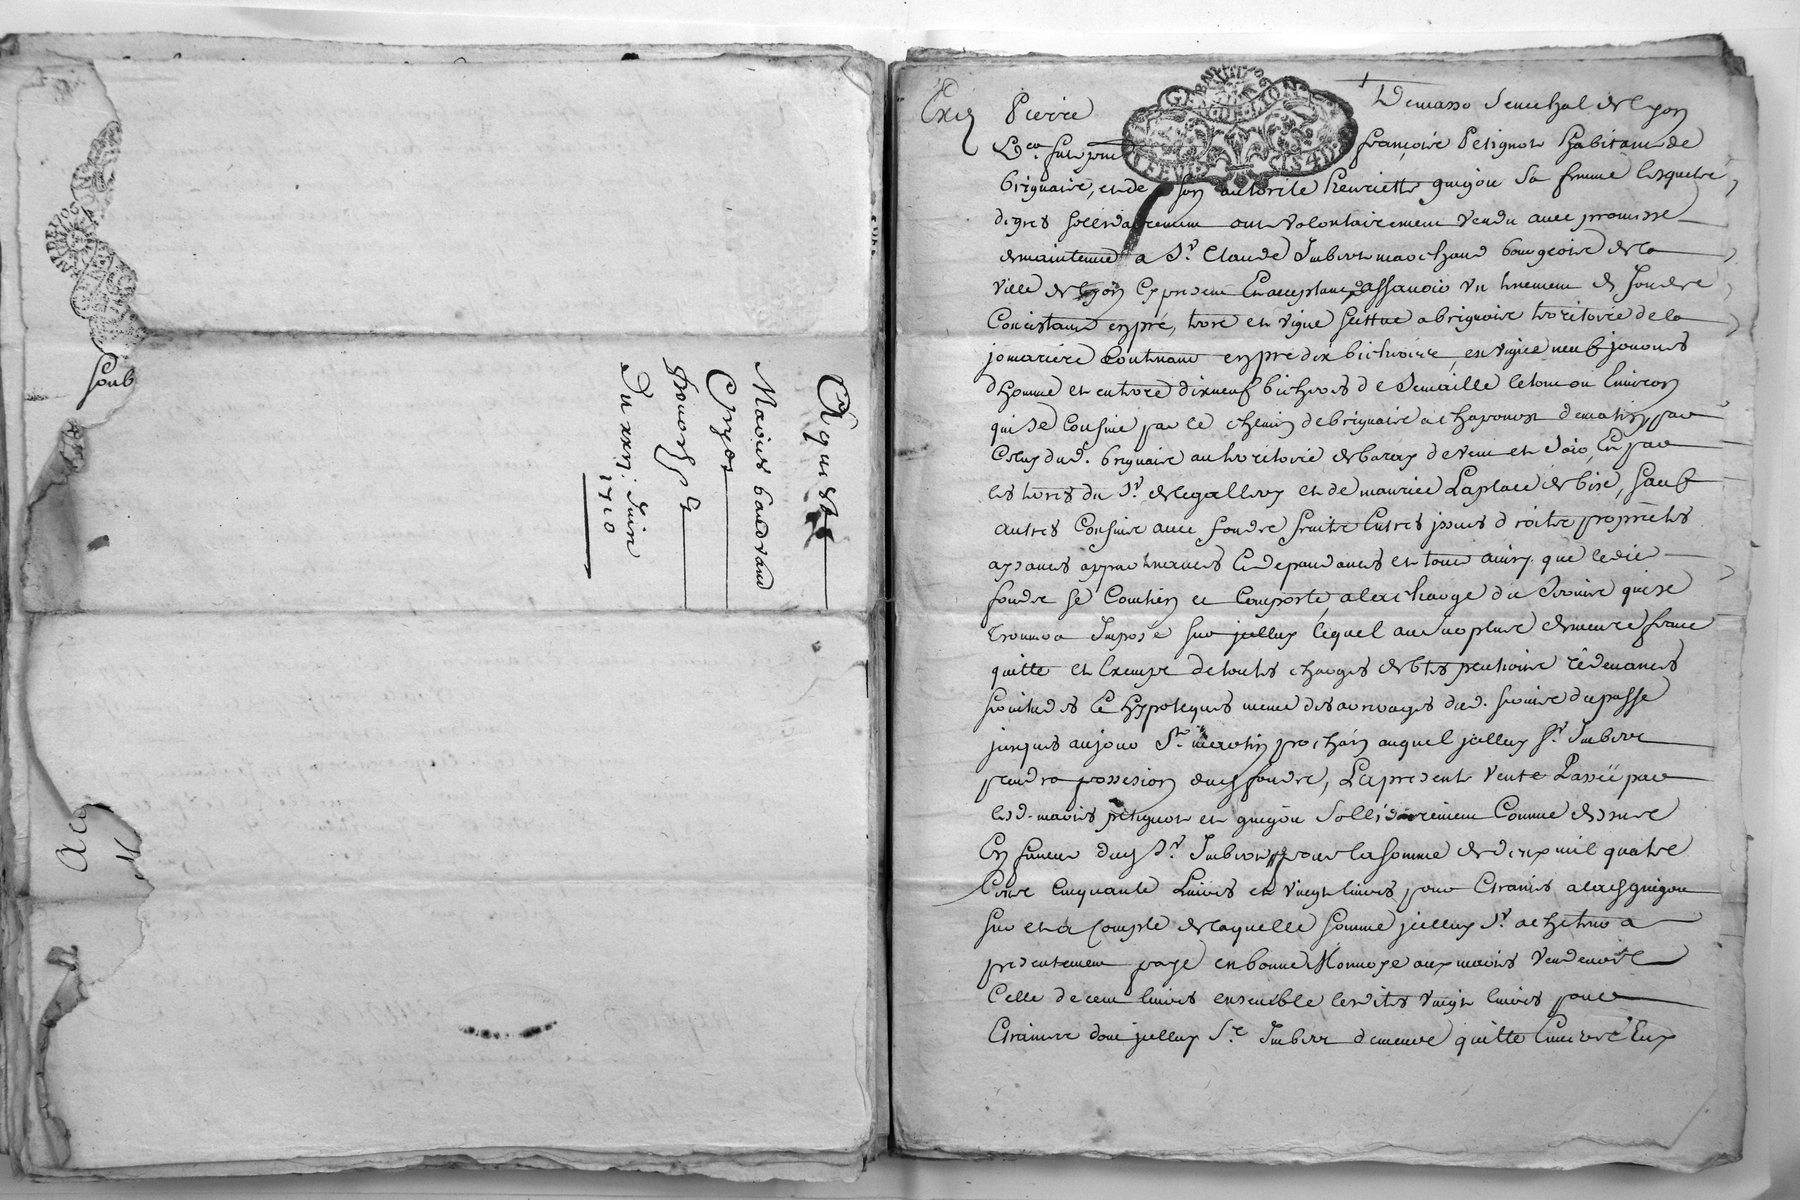 Soub
Acq
Aquest
Maries baudrand
Du xxvj. Juin
1710
GENERALITE LYON
Pierre Demasso Senechal de Lyon
françoise Petignot habitant de
brignaire, et de son autorite henriette guigou sa femme lesquels
de gres sollidairement ont volontairement vendu avec promesse
de maintenue a Sr. Claude Imbert marchand bourgeois de la
ville de Lyon Cy present Et acceptant assavoir un tenement de fondre
Concistant en pré, terre et vigne scittue a brignaire territoire de la
jomariere Contenant en pré dix bicherée, en vigne neuf journés
d'homme et en terre dixneuf bicherés de Semaille le tout ou Environ
qui se Confine par le chemin de brignaire a chaponost de matin par
Celuy dud. brignaire au territoire de baray de vent et soir, Et par
les terres du Sr. de legallery et de maurice Laplace de bise, Sauf
autres Confins avec fondre fruitre Entrés issues droitre proprietés
aysances appartenances Et dependances et tout ainsy que ledit
fondre se Contien et Comporte a la charge du Servire qui se
Trouvera Imposé sur jcelluy lequel au surplus demeure franc
quitte et Exempt de toutes charges debtes pentions redevances
servitudes Et hypoteques meme des arrerages dud. servire du passé
jusques au jour St. martin prochain auquel jcelluy Sr. Imbert
prendra possession dud fondre, La present vente Passée par
lesd. mariés petignot et guigou Sollidairement Comme dessus
En faveur dud Sr. Imbert pour la somme de deux mil quatre
Cent Cinquante Livres et vingt livres pour Etraines a lad guigou
sur et a Compte de laquelle somme jcelluy Sr. achetteur a
presentement payé en bonne Monnoye aux mariés vendeurs
Celle de cent livres ensemble lesdites vingt livres pour
Etrainne dont jcelluy Sr. Imbert demeure quitte Envers Eux